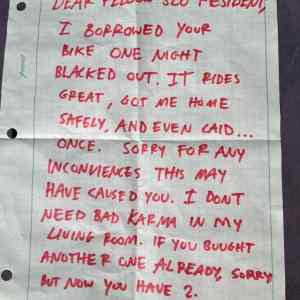 DEAR FELLOW SLO RESIDENT,
I BORROWED YOUR
BIKE ONE NIGHT
BLACKED OUT. IT RIDES
GREAT, GOT ME HOME
SAFELY, AND EVEN LAID...
ONCE. SORRY FOR ANY
INCONVIENCES THIS MAY
HAVE CAUSED YOU. I DONT
NEED BAD KARMA IN MY
LIVING ROOM. IF YOU BOUGHT
ANOTHER ONE ALREADY, SORRY
BUT NOW YOU HAVE 2.